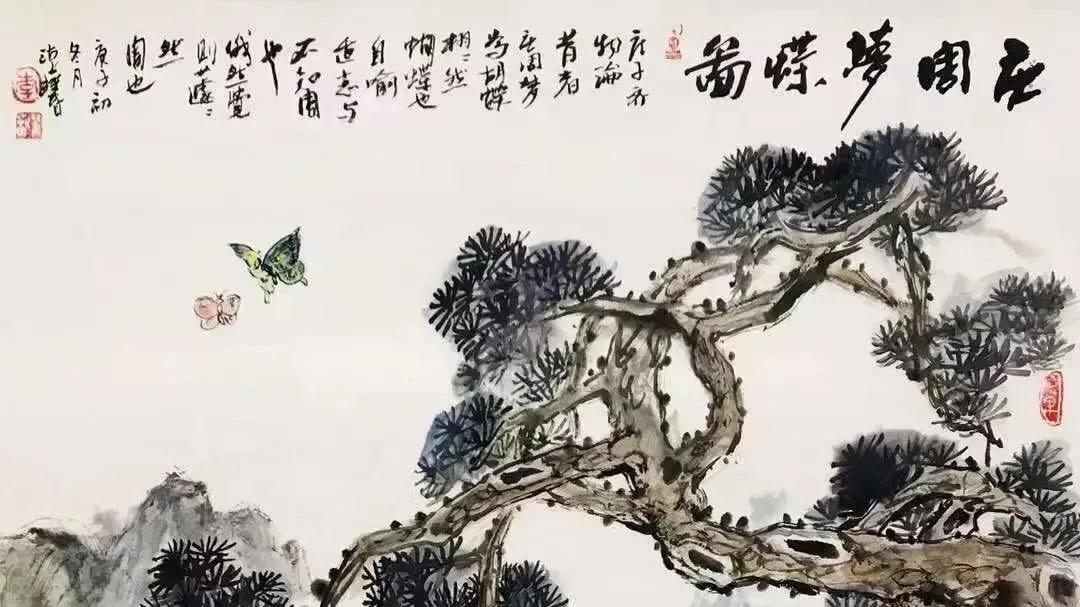 庄周夢蝶啚
庄子齐
物論
昔者
庄周梦
為胡蝶
栩〻然
蝴蝶也
自喻
适志与
不知周
也
俄然覺
則蘧〻
然
周也
庚子初
冬月